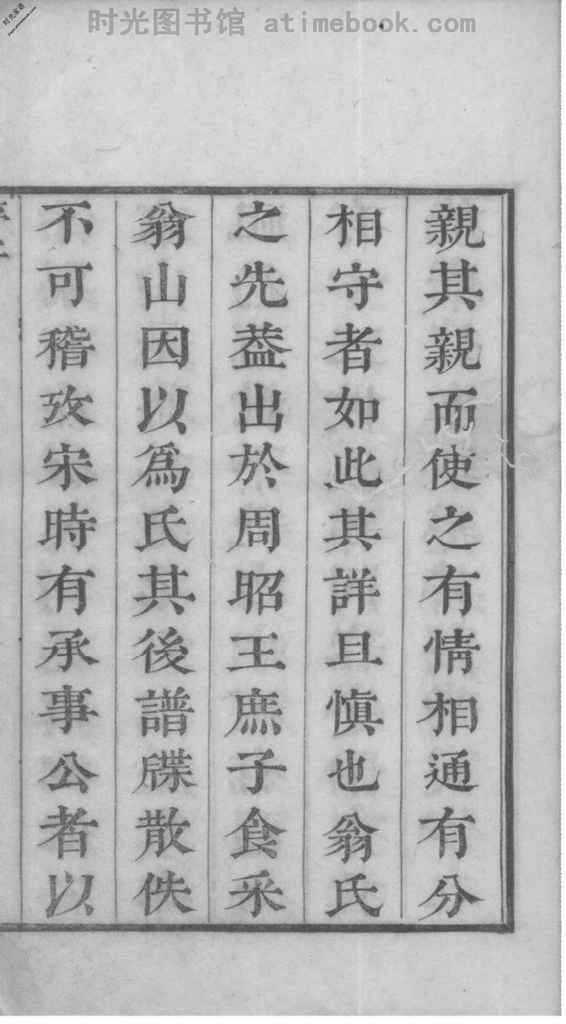 时光图书馆 atimebook.com
親其親而使之有情相通有分
相守者如此其詳且愼也翁氏
之先葢出於周昭王庶子食采
翁山因以爲氏其後譜牒散佚
不可稽攷宋時有承事公者以